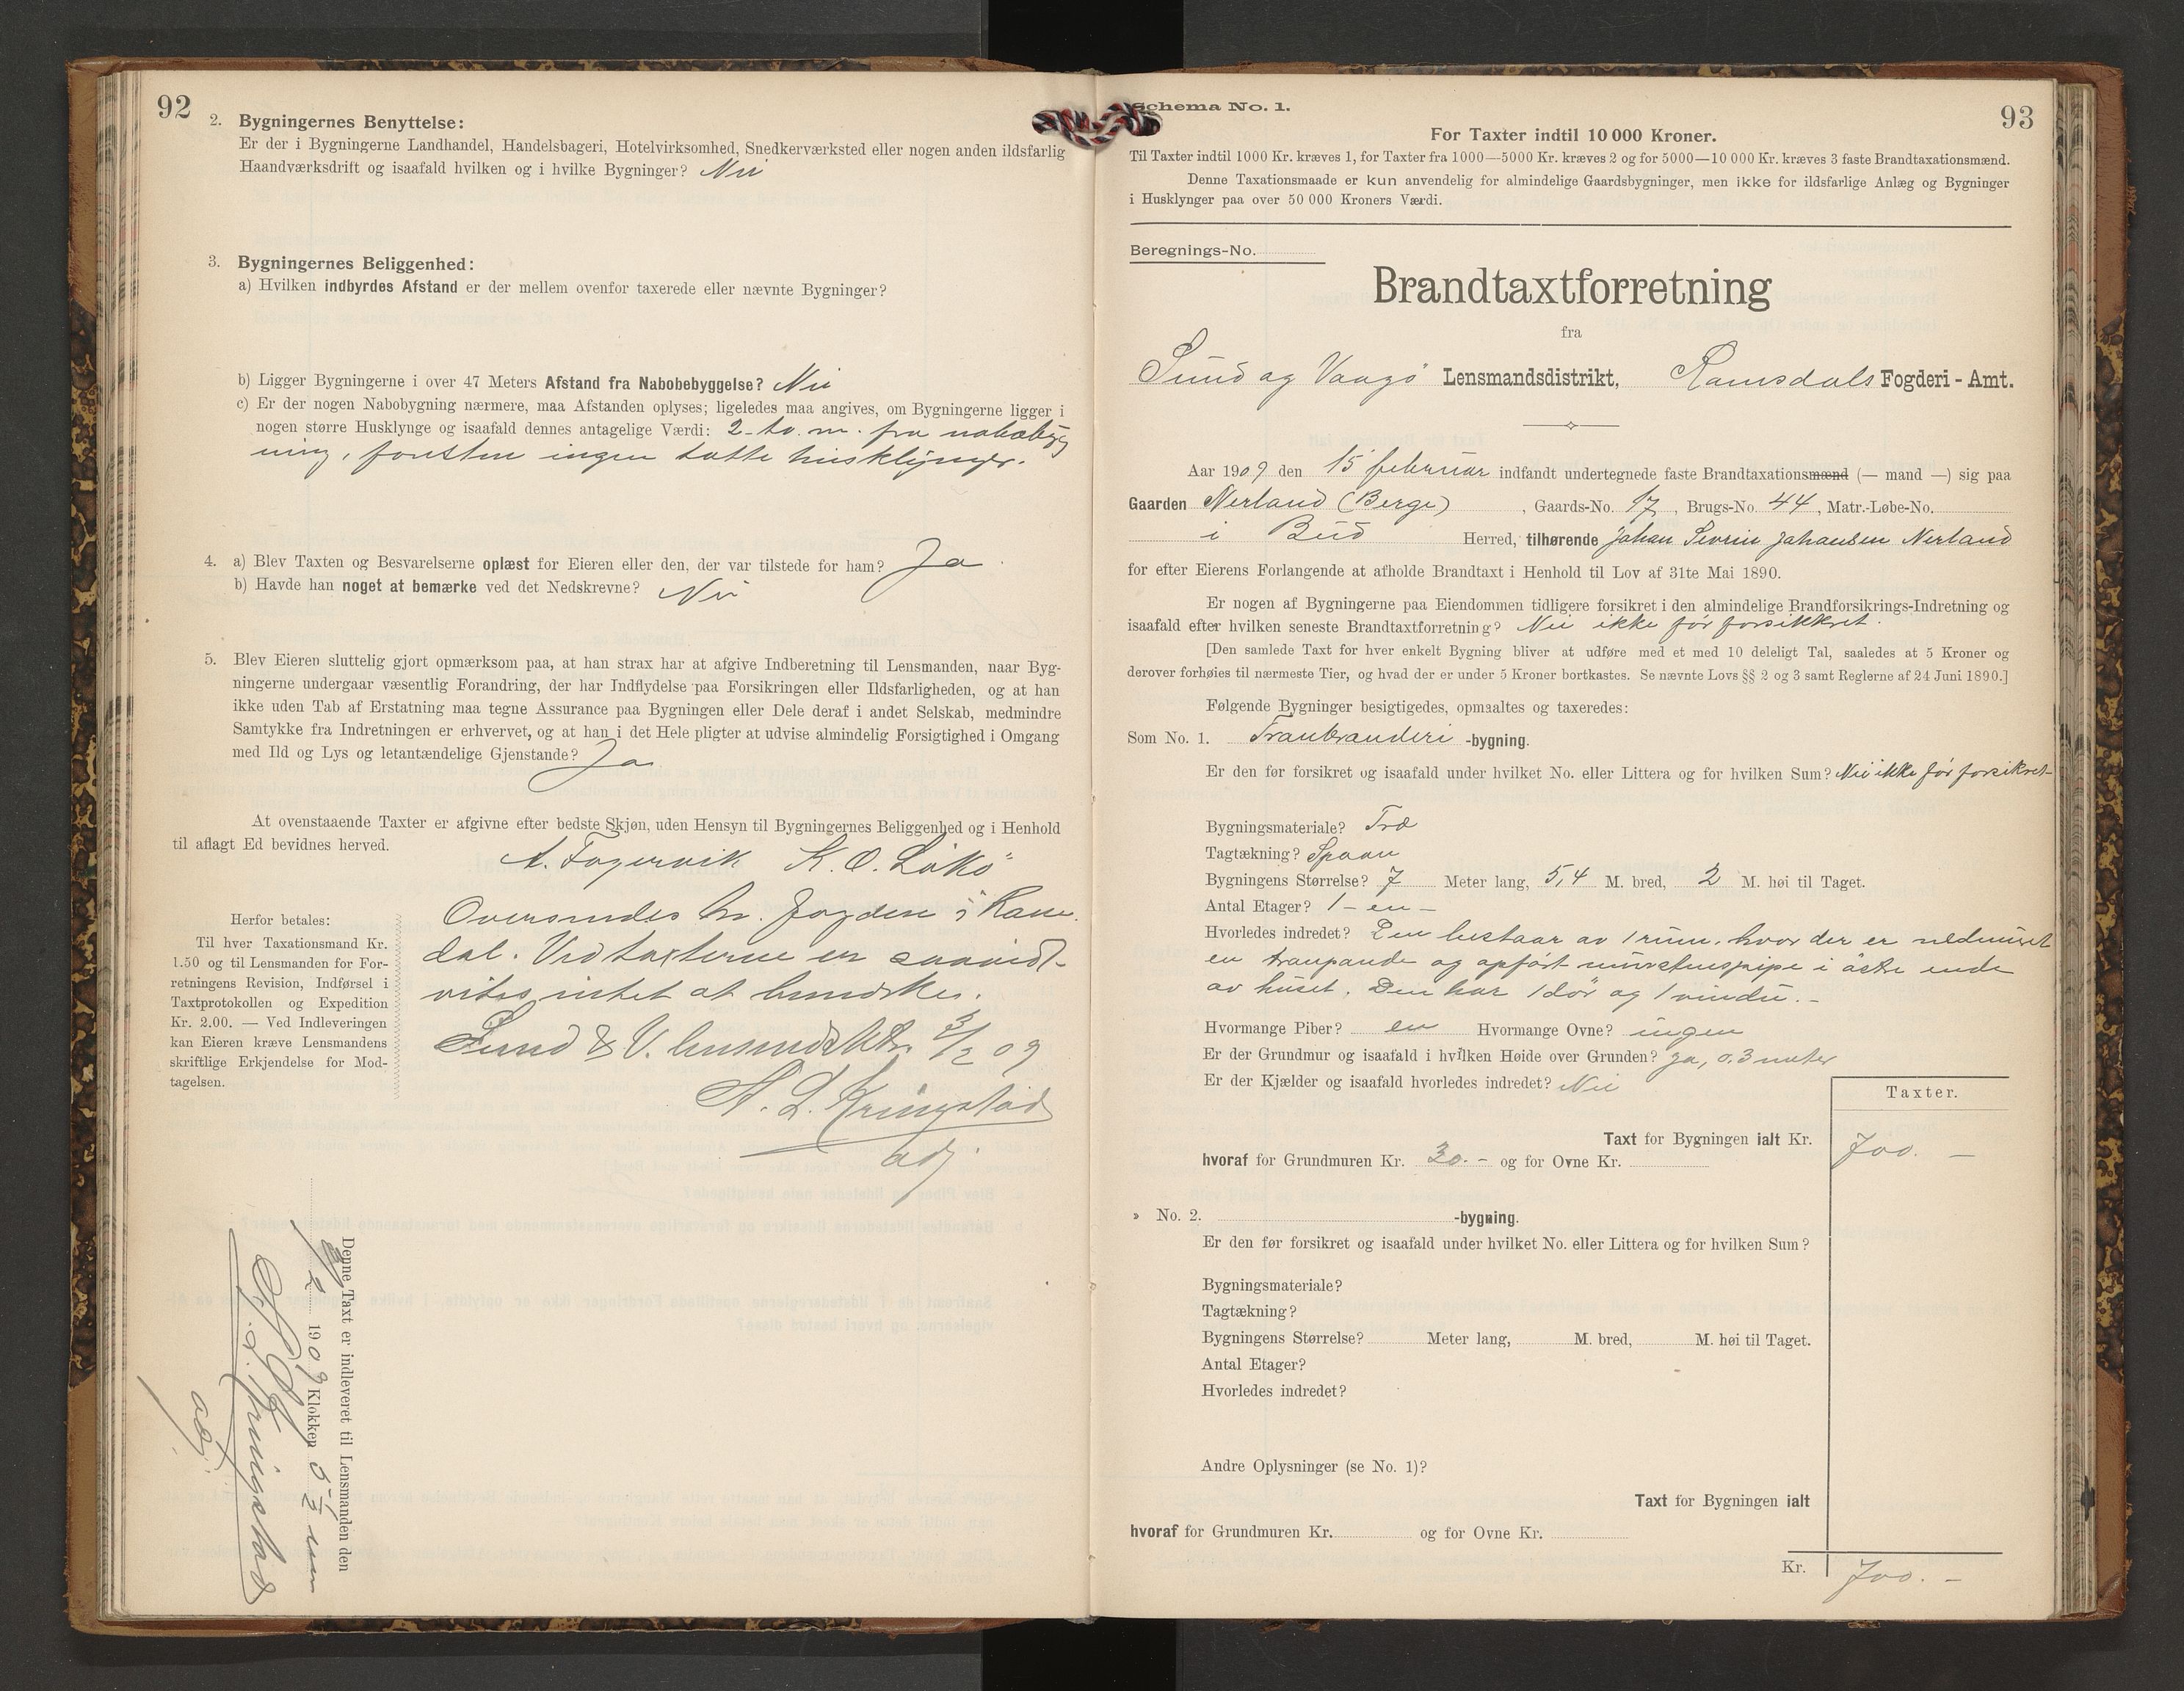 92
2. Bygningernes Benyttelse:
Er der i Bygningerne Landhandel, Handelsbageri, Hotelvirksomhed, Snedkerværksted eller nogen anden ildsfarlig
Haandværksdrift og isaafald hvilken og i hvilke Bygninger? Nei
3. Bygningernes Beliggenhed:
a) Hvilken indbyrdes Afstand er der mellem ovenfor taxerede eller nævnte Bygninger?
b) Ligger Bygningerne i over 47 Meters Afstand fra Nabobebyggelse? Nei
c) Er der nogen Nabobygning nærmere, maa Afstanden oplyses; ligeledes maa angives, om Bygningerne ligger i
nogen større Husklynge og isaafald dennes antagelige Værdi: 2 - to. m. fra nabobyg
ning, foresten ingen tætte husklynger.
4. a) Blev Taxten og Besvarelserne oplæst for Eieren eller den, der var tilstede for ham? Ja
b) Havde han noget at bemærke ved det Nedskrevne? Nei
5. Blev Eieren sluttelig gjort opmærksom paa, at han strax har at afgive Indberetning til Lensmanden, naar Byg-
ningerne undergaar væsentlig Forandring, der har Indflydelse paa Forsikringen eller Ildsfarligheden, og at han
ikke uden Tab af Erstatning maa tegne Assurance paa Bygningen eller Dele deraf i andet Selskab, medmindre
Samtykke fra Indretningen er erhvervet, og at han i det Hele pligter at udvise almindelig Forsigtighed i Omgang
med Ild og Lys og letantændelige Gjenstande? Ja
At ovenstaaende Taxter er afgivne efter bedste Skjøn, uden Hensyn til Bygningernes Beliggenhed og i Henhold
til aflagt Ed bevidnes herved.
A. Fagervik K. O. Løkø
Herfor betales:
Til hver Taxationsmand Kr.
1.50 og til Lensmanden for For-
retningens Revision, Indførsel i
Taxtprotokollen og Expedition
Kr. 2.00. — Ved Indleveringen
kan Eieren kræve Lensmandens
skriftlige Erkjendelse for Mod-
tagelsen.
Oversendes hr. Fogden i Roms-
dal. Ved taxterne er saavidt
vites intet at bemærke.
Sund & V. lensmdsktr. 3/2 09
A. L. Kringstad
adj
Denne Taxt er indleveret til Lensmanden den
/2 1909 Klokken 5 1/2 em
A. L. Kringstad
adj.
Schema No. 1.
93
For Taxter indtil 10 000 Kroner.
Til Taxter indtil 1000 Kr. kræves 1, for Taxter fra 1000—5000 Kr. kræves 2 og for 5000—10 000 Kr. kræves 3 faste Brandtaxationsmænd.
Denne Taxationsmaade er kun anvendelig for almindelige Gaardsbygninger, men ikke for ildsfarlige Anlæg og Bygninger
i Husklynger paa over 50 000 Kroners Værdi.
Beregnings-No.
Brandtaxtforretning
fra
Sund og Vaagø Lensmandsdistrikt, Romsdals Fogderi - Amt.
Aar 1909 den 15 februar indfandt undertegnede faste Brandtaxationsmænd (— mand —) sig paa
Gaarden Nerland (Berge), Gaards-No. 17, Brugs-No. 44, Matr.-Løbe-No.
i Bud Herred, tilhørende Johan Sevrin Johansen Nerland
for efter Eierens Forlangende at afholde Brandtaxt i Henhold til Lov af 31te Mai 1890.
Er nogen af Bygningerne paa Eiendommen tidligere forsikret i den almindelige Brandforsikrings-Indretning og
isaafald efter hvilken seneste Brandtaxtforretning? Nei ikke før forsikkret.
[Den samlede Taxt for hver enkelt Bygning bliver at udføre med et med 10 deleligt Tal, saaledes at 5 Kroner og
derover forhøies til nærmeste Tier, og hvad der er under 5 Kroner bortkastes. Se nævnte Lovs §§ 2 og 3 samt Reglerne af 24 Juni 1890.]
Følgende Bygninger besigtigedes, opmaaltes og taxeredes:
Som No. 1. Tranbranderi -bygning.
Er den før forsikret og isaafald under hvilket No. eller Littera og for hvilken Sum? Nei ikke før forsikret
Bygningsmateriale? Træ
Tagtækning? Spaan
Bygningens Størrelse? 7 Meter lang, 5,4 M. bred, 2 M. høi til Taget.
Antal Etager? 1 - en -
Hvorledes indredet? Den bestaar av 1 rum, hvor der er nedmuret
en tranpande og opført murstenspipe i østre ende
av huset. Den har 1 dør og 1 vindu. -
Hvormange Piber? en Hvormange Ovne? ingen
Er der Grundmur og isaafald i hvilken Høide over Grunden? ja, 0.3 meter
Er der Kjælder og isaafald hvorledes indredet? Nei
Taxter.
Taxt for Bygningen ialt Kr. 700. —
hvoraf for Grundmuren Kr. 30.- og for Ovne Kr.
» No. 2. -bygning.
Er den før forsikret og isaafald under hvilket No. eller Littera og for hvilken Sum?
Bygningsmateriale?
Tagtækning?
Bygningens Størrelse? Meter lang, M. bred, M. høi til Taget.
Antal Etager?
Hvorledes indredet?
Andre Oplysninger (se No. 1)?
Taxt for Bygningen ialt
hvoraf for Grundmuren Kr. og for Ovne Kr.
Kr. 700. -